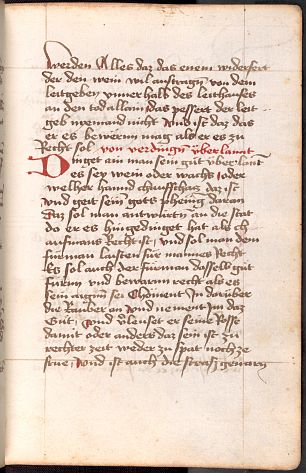 werden Alles daz das enem widerfert
der den wein wil austragn von dem
leitgeben ynnerhalb des leithauses
an den tod allain das pessert der leit
geb niemand nicht Und ist daz das
er es bewern mag als er es zu
Recht sol von verdingn vber lannt
Dinget ain man sein gut vber lant
es sey wein oder wachs oder
welher hannd chaufschacz daz ist
vnd geit sein gots phening daran
Daz sol man antwurtn an die stat
do er es hingedinget hat als ich
aufmans Recht ist, vnd sol man dem
furman laisten fur mannes Recht
Es sol auch der furman dasselb gut
furen vnd bewarnn recht als es
sein aigen sei Choment Im daruber
die Rauber an vnd nement Im daz
Gut, Vnd vleuset er seine Ross
damit oder anders daz sein ist zu
rechter zeit weder zu spat noch ze
frue, Vnd ist auch die strasz gewarn